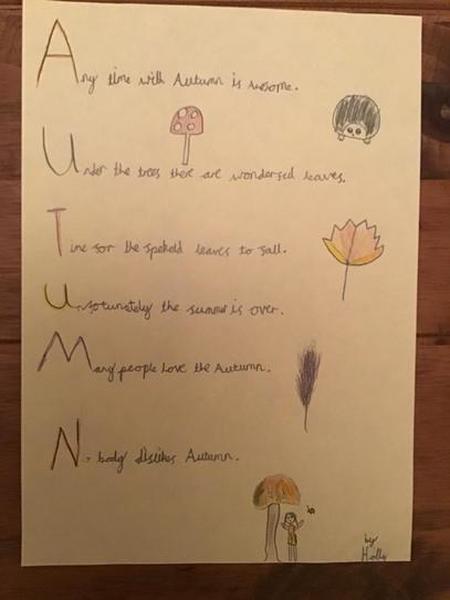 Any time with Autumn is awsome.
Under the trees there are leaves.
Time for the leaves to fall.
Unfotunately the summer is over.
Many people love the Autumn.
No body dislikes Autumn.
by
Holly